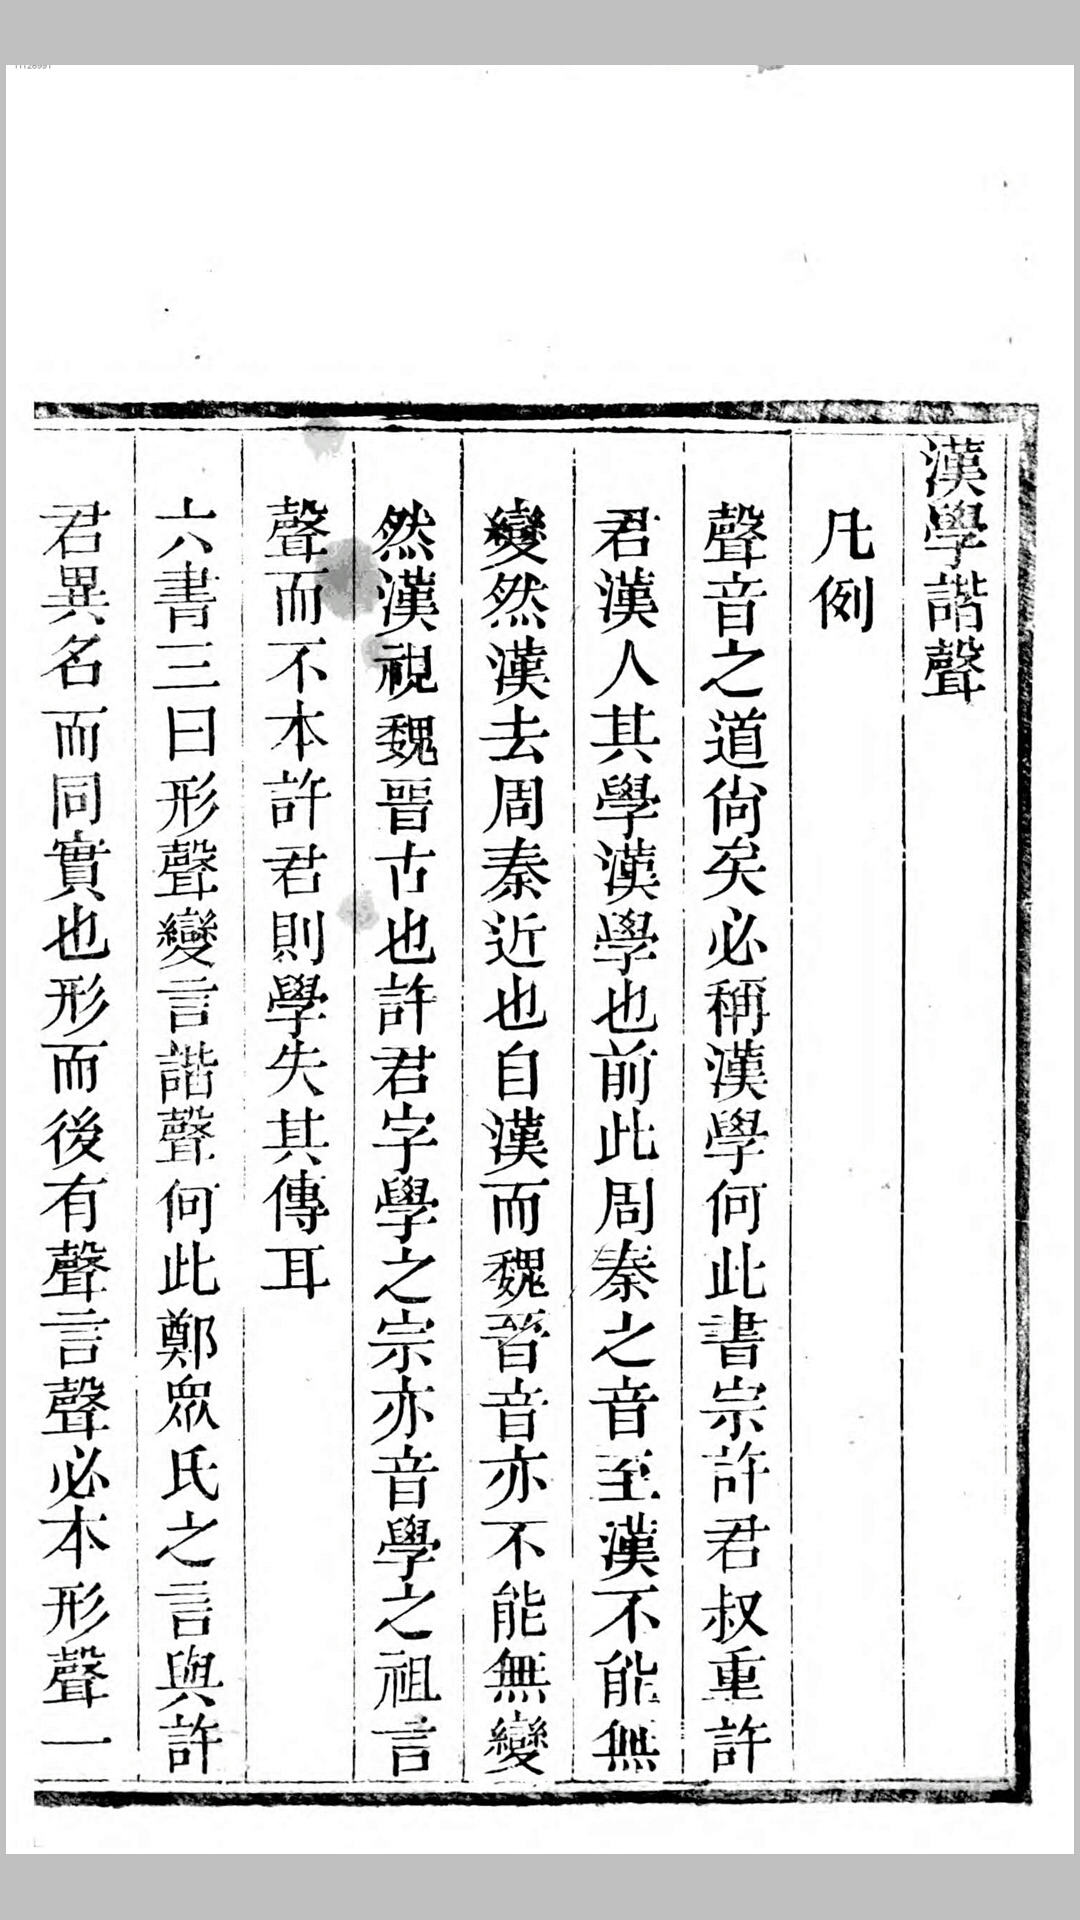 漢學諧聲
凡例
聲音之道尙矣必稱漢學何此書宗許君叔重許
君漢人其學漢學也前此周秦之音至漢不能無
變然漢去周秦近也自漢而魏晉音亦不能無變
然漢視魏晉古也許君字學之宗亦音學之祖言
聲而不本許君則學失其傳耳
六書三曰形聲變言諧聲何此鄭眾氏之言與許
君異名而同實也形而後有聲言聲必本形聲一